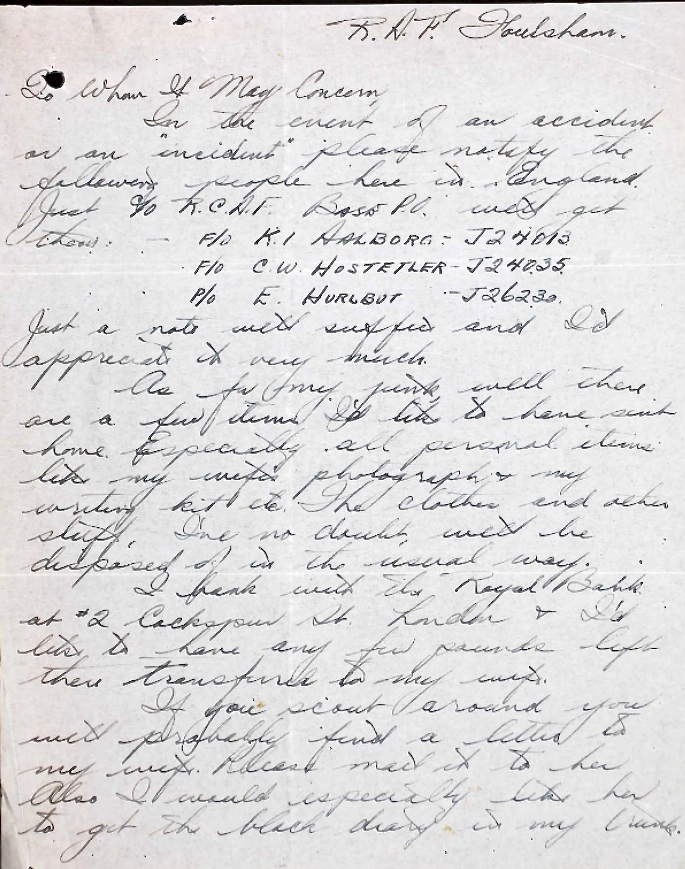 R.A.F. Foulsham.
To Whom It May Concern,
In the event of an accident
or an "incident" please notify the
following people here in England.
Just c/o R.C.A.F. Base P.O. will get
them. - F/O K.I AALBORG - J24013
F/O C.W. HOSTETLER - J24035.
P/O E. HURLBUT - J26230.
Just a note will suffice and I'd
appreciate it very much.
As for my junk, well there
are a few items I'd like to have sent
home. Especially all personal items
like my wife's photograph & my
writing kit etc. The clothes and other
stuff, I've no doubt, will be
disposed of in the usual way.
I bank with the Royal Bank
at #2 Cockspur St. London & I'd
like to have any few pounds left
there transferred to my wife.
If you scout around you
will probably find a letter to
my wife. Please mail it to her
Also I would especially like her
to get the black diary in my trunk.